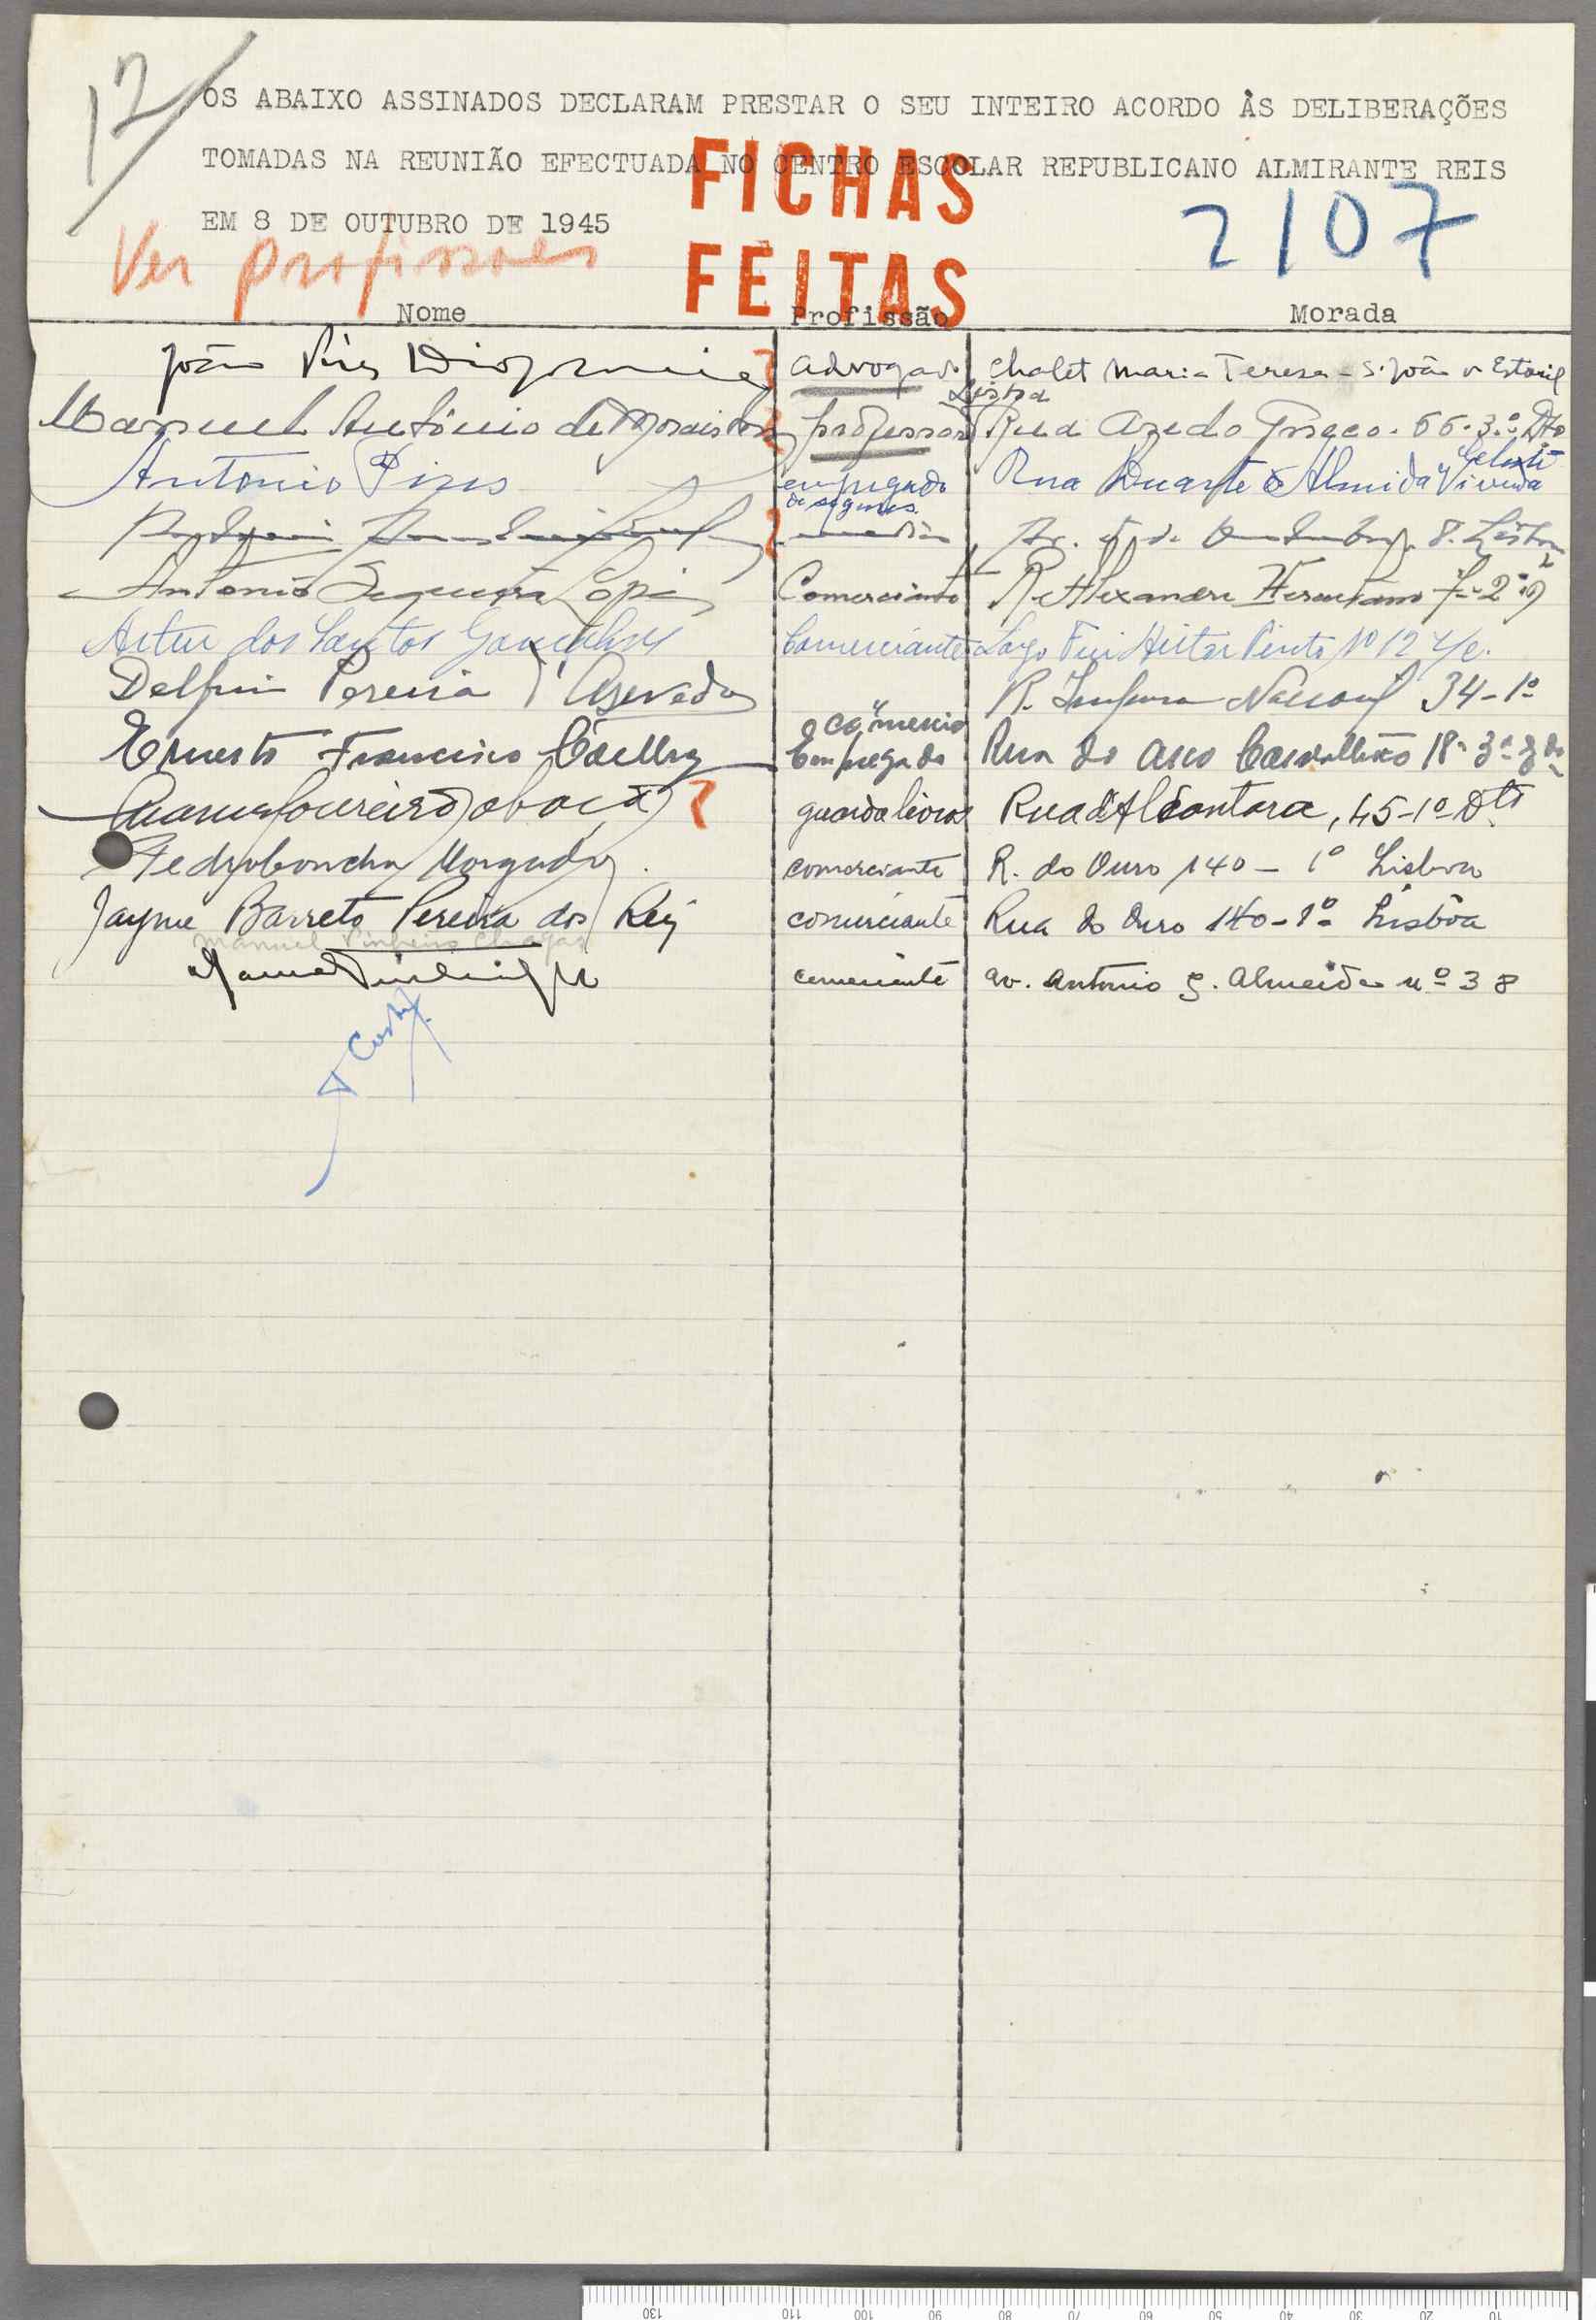 12
OS ABAIXO ASSINADOS DECLARAM PRESTAR O SEU INTEIRO ACORDO ÀS DELIBERAÇÕES
TOMADAS NA REUNIÃO EFECTUADA NO CENTRO ESCOLAR REPUBLICANO ALMIRANTE REIS
EM 8 DE OUTUBRO DE 1945
FICHAS
FEITAS
2107
Ver profissões
Nome Profissão Morada
João Pires advogado Chalet Maria Teresa - S. João Estoril
Lisboa
Manuel António de Morais professor Rua Azedo Gneco - 66 - 3.º Dto
Antonio Pires empregado de seguros Rua Duarte Almida Vivenda
5 de 8. Lisboa
Antonio Sequeira Lopes Comerciante R. Alexandre Herculano 7 - 2º
Artur dos Santos Gonçalves Comerciante Largo Heitor Pinto Nº 12 r/c.
Delfim Pereira d'Azevedo R. Nacional 34 - 1º
Ernesto Francisco Coelho Empregado comercio Rua do Arco Carvalhão 18 - 3º
Loureiro guarda livros Rua d'Alcantara, 45-1º Dtº
Pedro Morgado comerciante R. do Ouro 140 - 1º Lisboa
Jayme Barreto Pereira dos Reis comerciante Rua do Ouro 140-1º Lisbôa
Manuel Pinheiro Chagas
comerciante av. Antonio J. Almeida nº 38